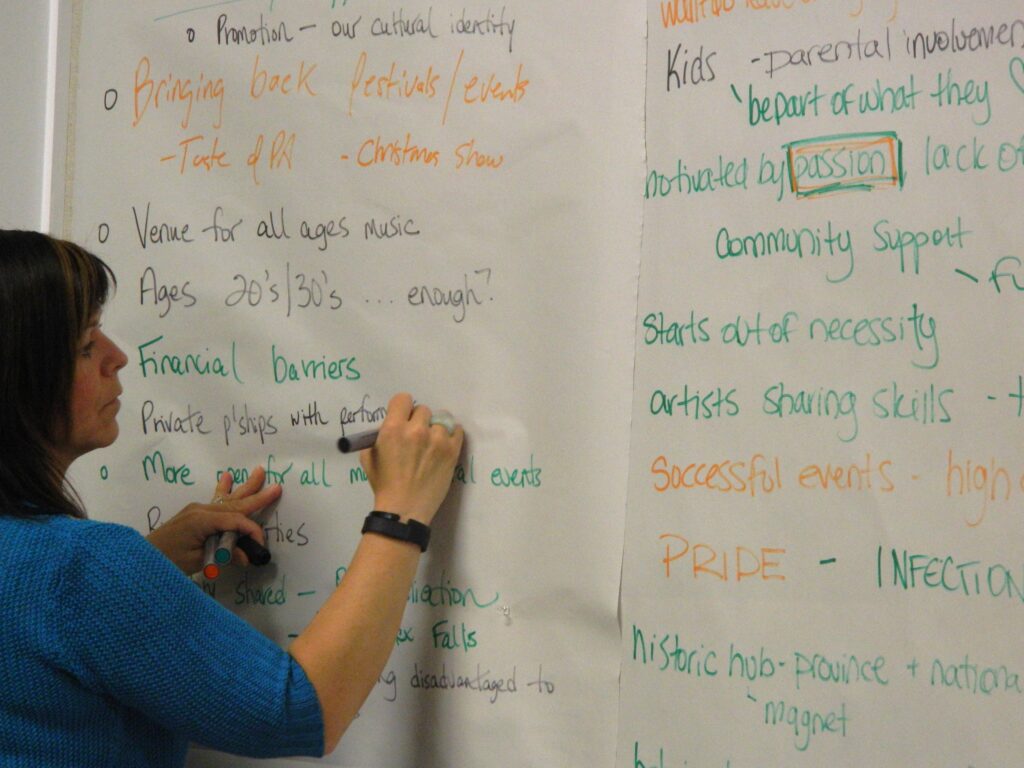 o Promotion - our cultural identity
o Bringing back festivals/events
- Taste of PA - Christmas Show
o Venue for all ages music
Ages 20's/30's ... enough?
Financial barriers
Private p'ships with perform
o More open for all events
shared -
Falls
disadvantaged to
Kids - parental involvemen
be part of what they
motivated by passion lack of
Community Support
starts out of necessity
artists sharing skills -
Successful events - high
PRIDE - INFECTION
historic hub - province + nationa
magnet